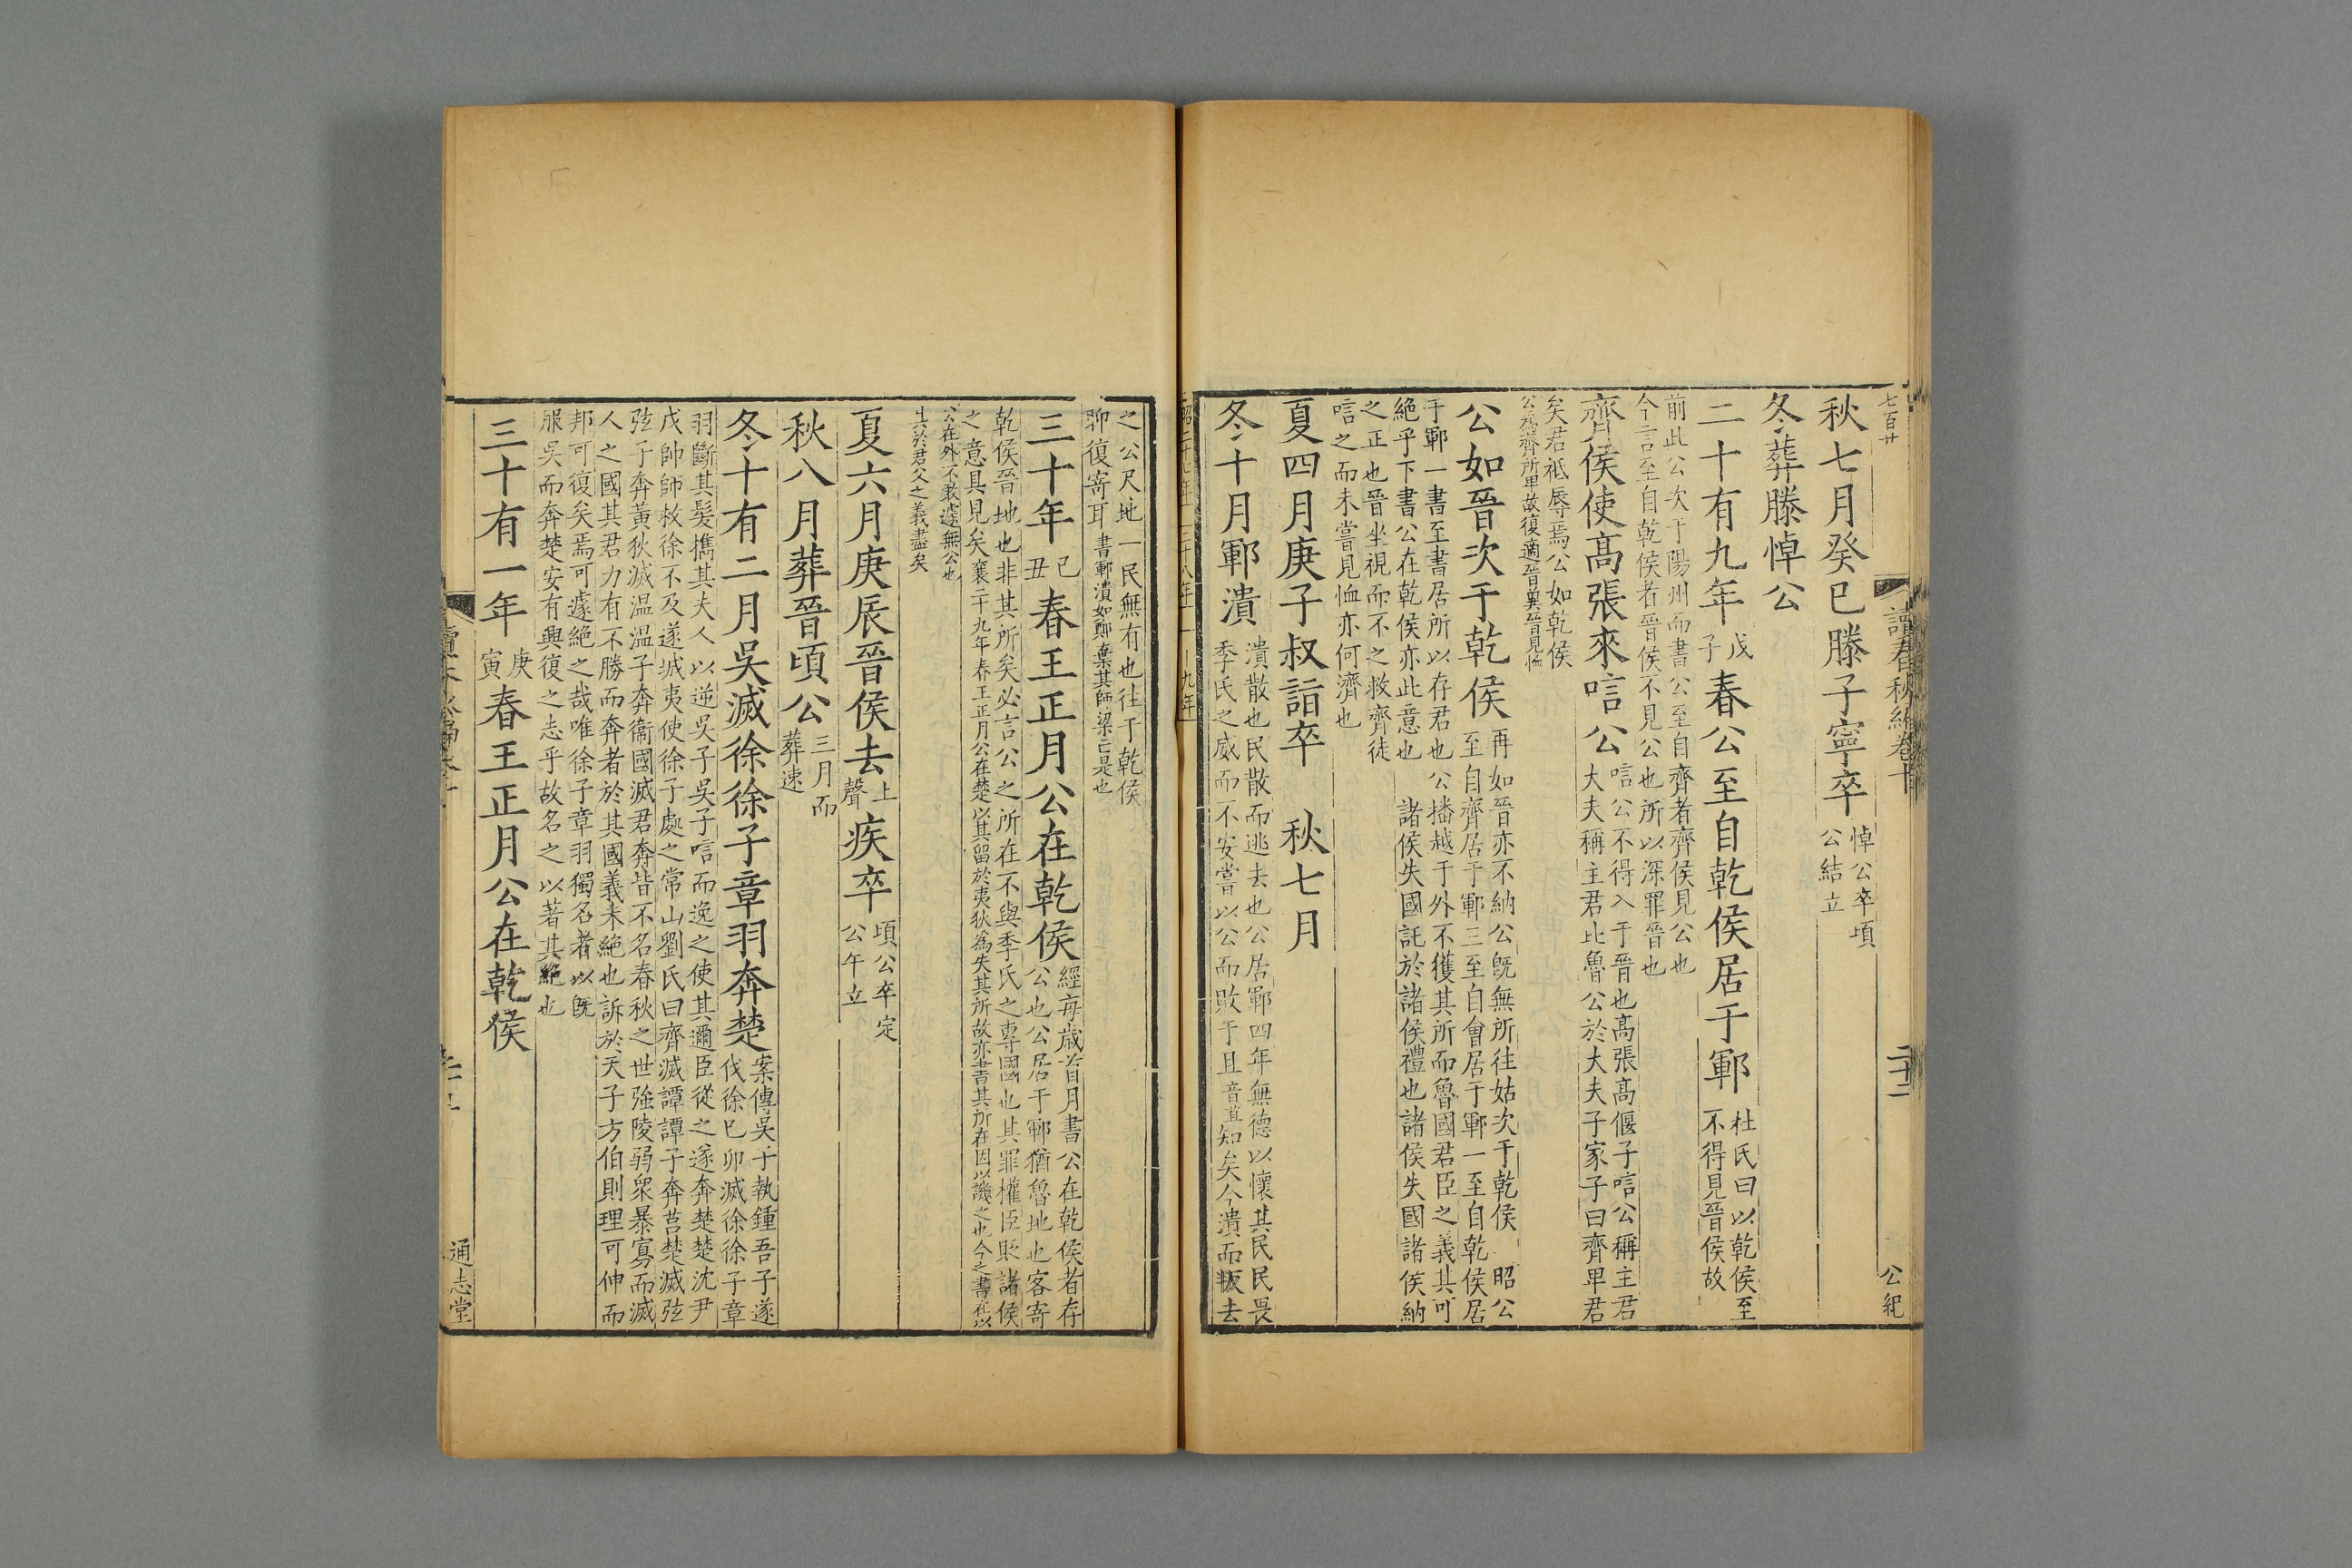 七百廿
讀春秋編卷十
二十二
公紀
秋七月癸巳滕子寧卒
悼公卒頃
公結立
冬葬滕悼公
二十有九年
戊
子
春公至自乾侯居于鄆
杜氏曰以乾侯至
不得見晉侯故
前此公次于陽州而書公至自齊者齊侯見公也
今言至自乾侯者晉侯不見公也所以深罪晉也
齊侯使髙張來唁公
唁公不得入于晉也髙張髙偃子唁公稱主君
大夫稱主君比魯公於大夫子家子曰齊卑君
矣君祗辱焉公如乾侯
公爲齊所卑故復適晉兾晉見恤
公如晉次于乾侯
再如晉亦不納公旣無所往姑次于乾侯 昭公
至自齊居于鄆三至自會居于鄆一至自乾侯居
于鄆一書至書居所以存君也公播越于外不獲其所而魯國君臣之義其可
絕乎下書公在乾侯亦此意也 諸侯失國託於諸侯禮也諸侯失國諸侯納
之正也晉坐視而不之救齊徒
唁之而未嘗見恤亦何濟也
夏四月庚子叔詣卒 秋七月
冬十月鄆潰
潰散也民散而逃去也公居鄆四年無德以懷其民民畏
季氏之威而不安嘗以公而敗于且知矣今潰而叛去
之公尺地一民無有也往于乾侯
聊復寄耳
書鄆潰如鄭棄其師梁亡是也
三十年
己
丑
春王正月公在乾侯
經每歲首月書公在乾侯者存
公也公居于鄆猶魯地也客寄
乾侯晉地也非其所矣必言公之所在不與季氏之專國也其罪權臣貶諸侯
之意具見矣襄二十九年春王正月公在楚以其留於夷狄爲失其所故亦書其所在因以譏之也今之書在以
公在外不敢遽無公也
其於君父之義盡矣
夏六月庚辰晉侯去
上
聲
疾卒
頃公卒定
公午立
秋八月葬晉頃公
三月而
葬速
冬十有二月吳滅徐徐子章羽奔楚
案傳吳子執鍾吾子遂
伐徐巳卯滅徐徐子章
羽斷其髮攜其夫人以逆吳子吳子唁而逸之使其邇臣從之遂奔楚楚沈尹
戌帥師救徐不及遂城夷使徐子處之常山劉氏曰齊滅譚譚子奔莒楚滅弦
弦子奔黃狄滅温温子奔衞國滅君奔皆不名春秋之世強陵弱衆暴寡而滅
人之國其君力有不勝而奔者於其國義未絶也訴於天子方伯則理可伸而
邦可復矣焉可遽絶之哉唯徐子章羽獨名者以旣
服吳而奔楚安有興復之志乎故名之以著其絕也
三十有一年
庚
寅
春王正月公在乾侯
通志堂